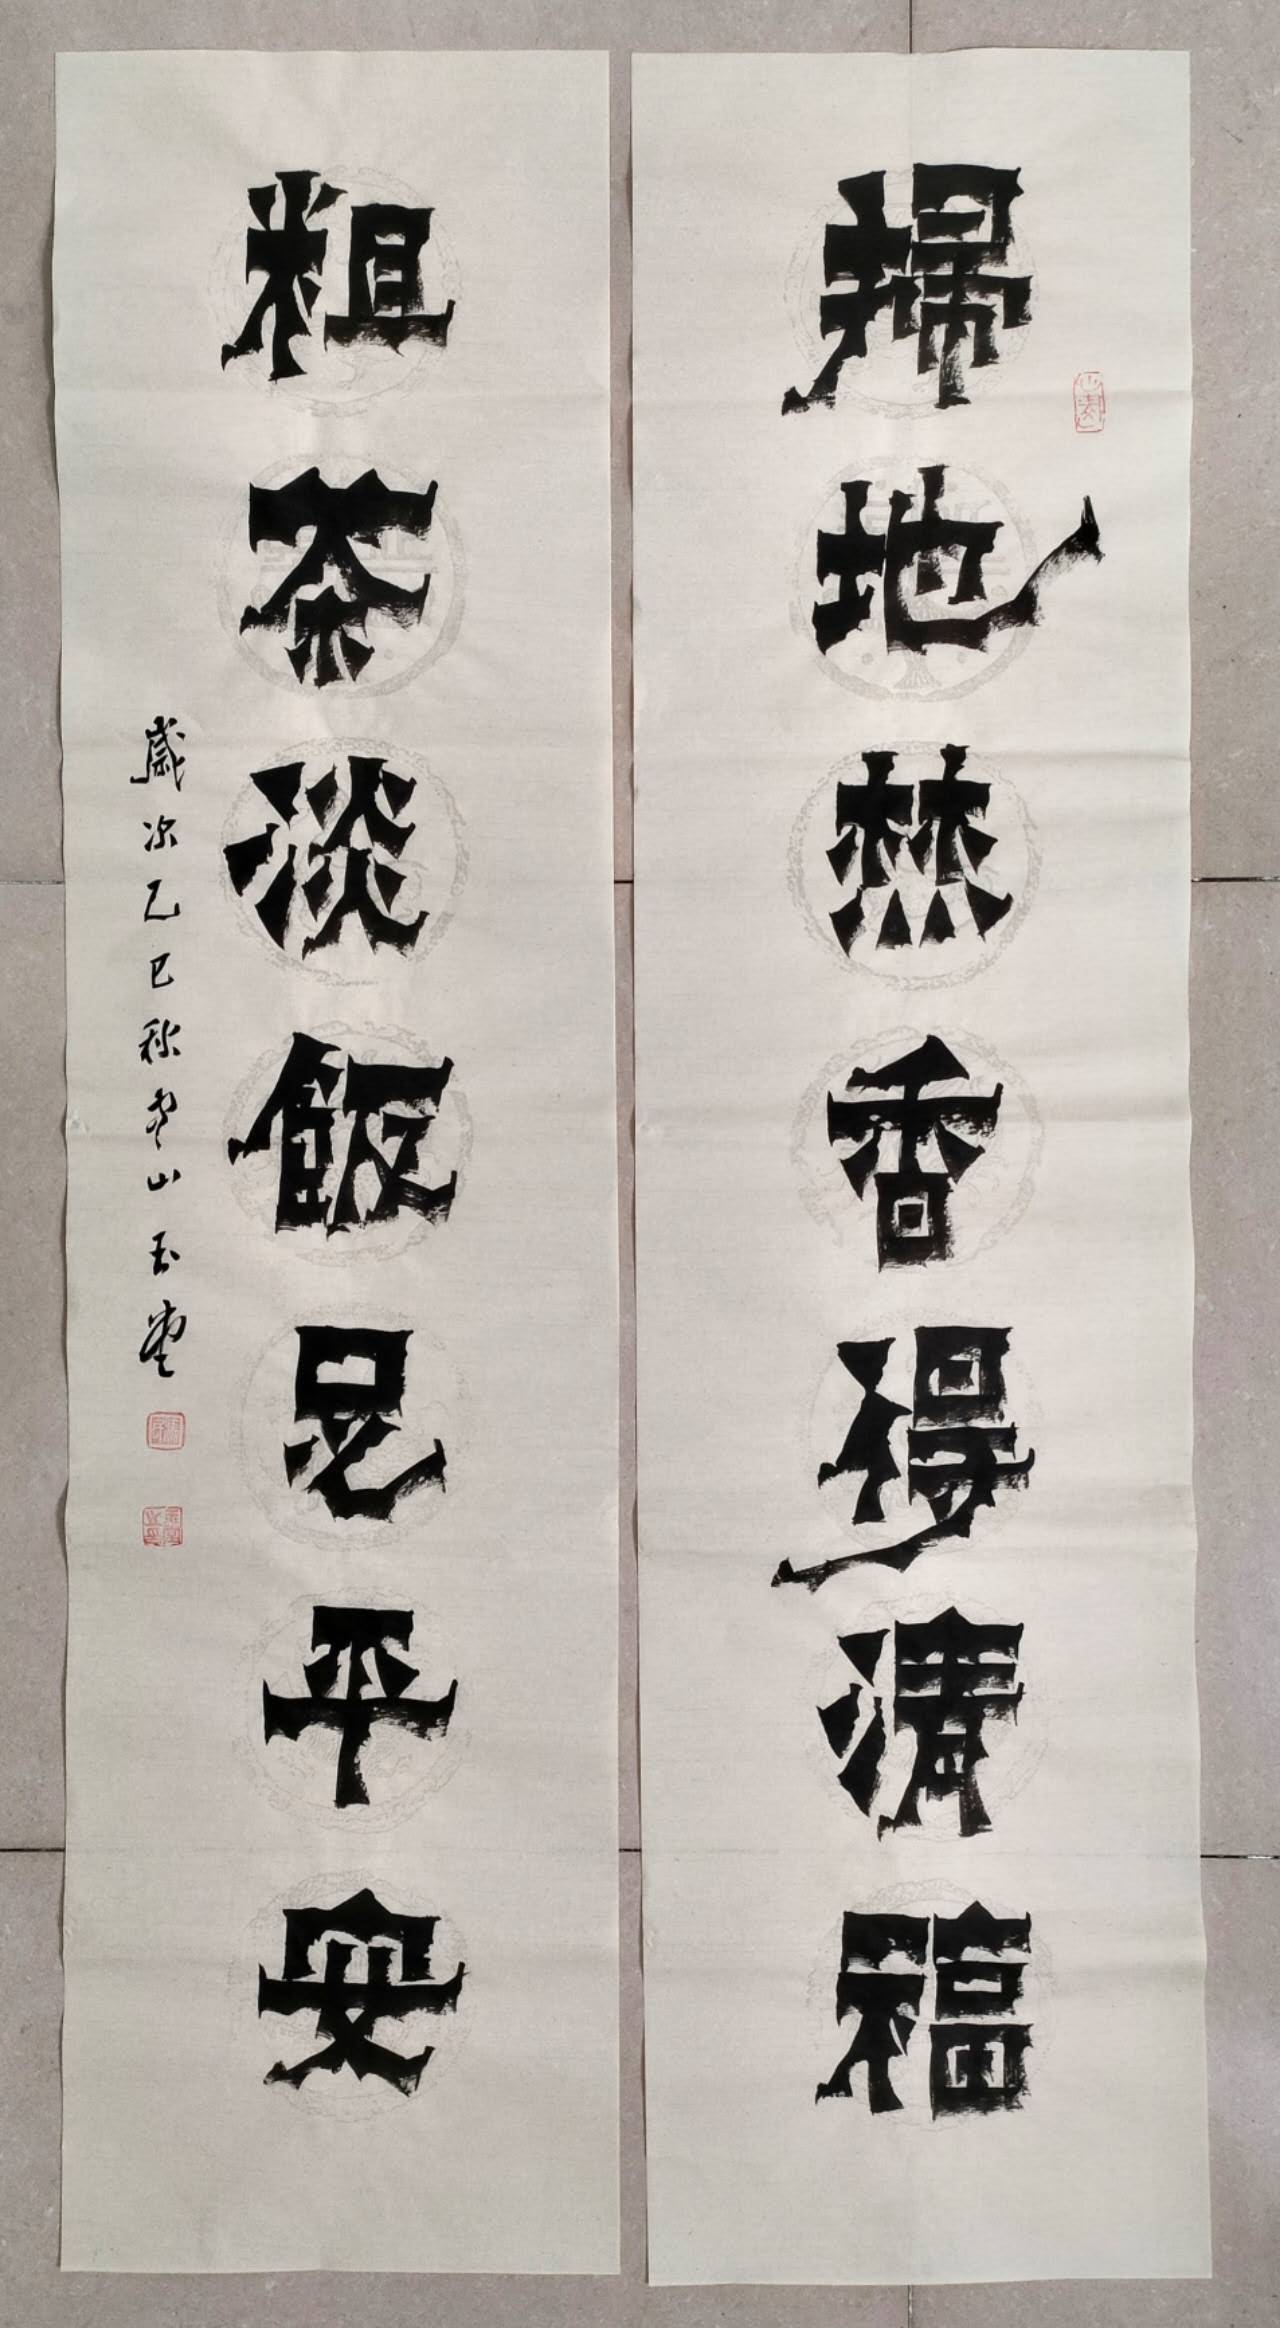 掃地焚香得清福
粗茶淡飯足平安
歲次乙巳秋 山玉堂